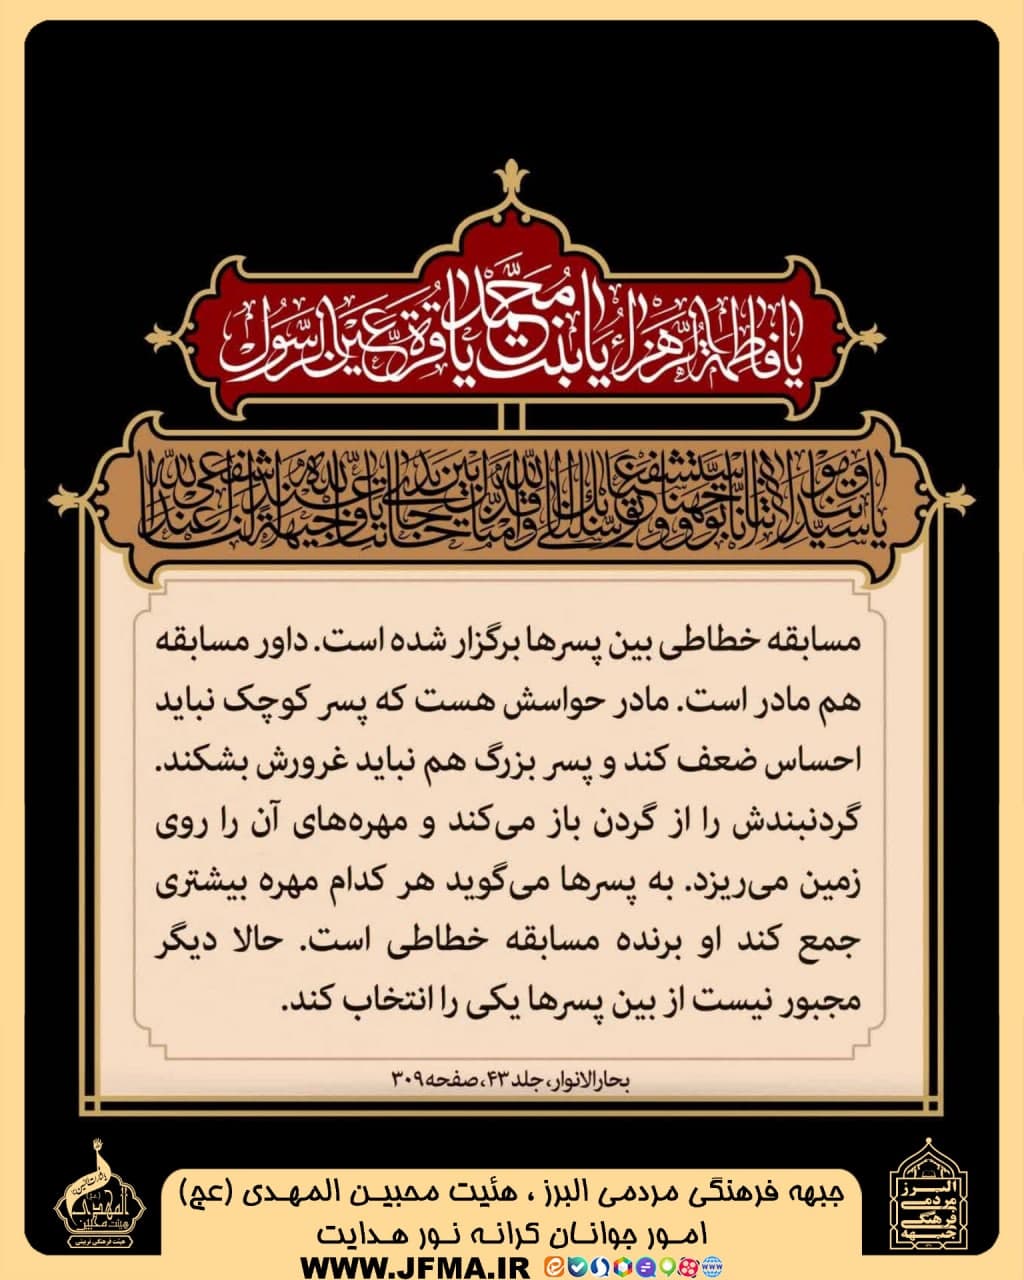 يا فاطمة الزهراء يا بنت محمد يا قرة عين الرسول
يا سيدتنا ومولاتنا انا توجهنا واستشفعنا وتوسلنا بك الى الله وقدمناك بين يدى حاجاتنا يا وجيهة عند الله اشفعى لنا عند الله
مسابقه خطاطی بین پسرها برگزار شده است. داور مسابقه
هم مادر است. مادر حواسش هست که پسر کوچک نباید
احساس ضعف کند و پسر بزرگ هم نباید غرورش بشکند.
گردنبندش را از گردن باز می‌کند و مهره‌های آن را روی
زمین می‌ریزد. به پسرها می‌گوید هر کدام مهره بیشتری
جمع کند او برنده مسابقه خطاطی است. حالا دیگر
مجبور نیست از بین پسرها یکی را انتخاب کند.
بحارالانوار، جلد ۴۳، صفحه ۳۰۹
جبهه فرهنگی مردمی البرز ، هئیت محبین المهدی (عج)
امور جوانان کرانه نور هدایت
WWW.JFMA.IR
المهدی
هیئت محبین
هیئت فرهنگی تربیتی
البرز
مردمی
فرهنگی
جبهه